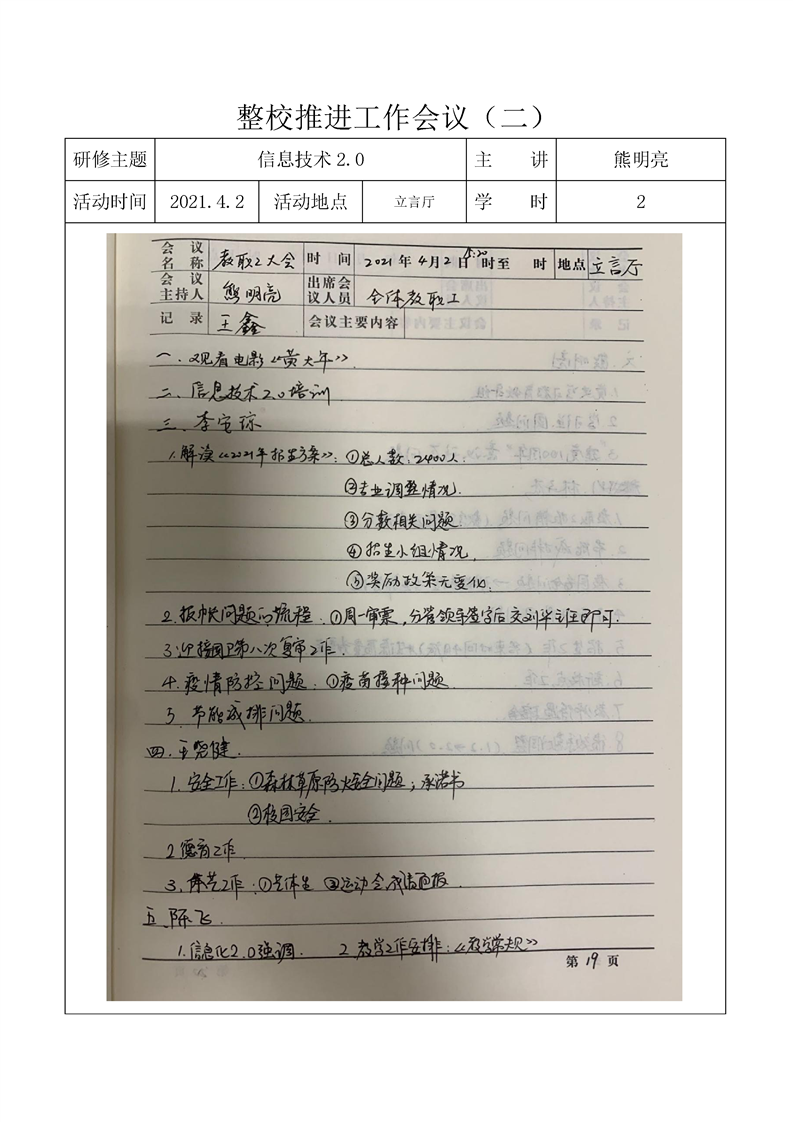 整校推进工作会议（二）
研修主题 信息技术2.0 主 讲 熊明亮
活动时间 2021.4.2 活动地点 立言厅 学 时 2
会议名称 教职工大会 时 间 2021年4月2日 时至 时 地点 立言厅
会议主持人 熊明亮 出席会议人员 全体教职工
记 录 王鑫 会议主要内容
一. 观看电影《黄大年》.
二、信息技术2.0培训
三、李宝琼
1.解读《2021年招生方案》：①总人数：2400人.
②专业调整情况.
③分数相关问题
④招生小组情况,
⑤奖励政策无变化.
2.报帐问题的流程. ①周一审票,分管领导签字后交刘半主任即可.
3.迎接国卫第八次复审工作.
4.疫情防控问题：①疫苗接种问题.
5. 节能减排问题.
四.王尧健.
1.安全工作：①森林草原防火安全问题；承诺书
②校园安全.
2.德育工作.
3.体艺工作：① 体生 ②运动会 .
五.陈飞.
1.信息化2.0强调. 2.教学工作安排：《教学常规》
第 19 页